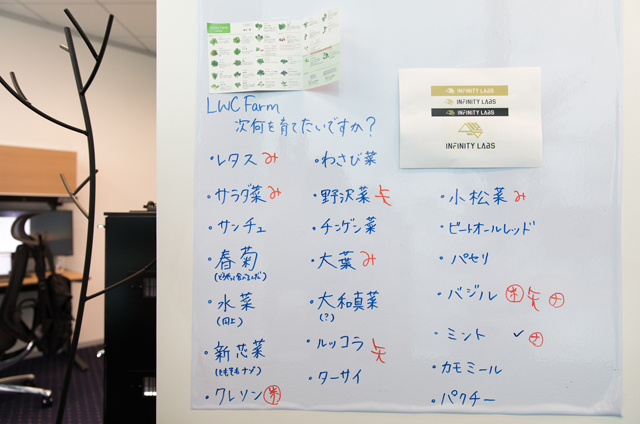 INFINITY LABS
INFINITY LABS
INFINITY LABS
INFINITY LABS
LWC Farm
次何を育てたいですか?
・レタス み
・サラダ菜 み
・サンチュ
・春菊
・水菜
(同上)
・新芯菜
・クレソン
・わさび菜
・野沢菜 矢
・チンゲン菜
・大葉 み
・大和真菜
(?)
・ルッコラ 矢
・ターサイ
・小松菜 み
・ビートオールレッド
・パセリ
・バジル 矢 ナ
・ミント ✓ ナ
・カモミール
・パクチー